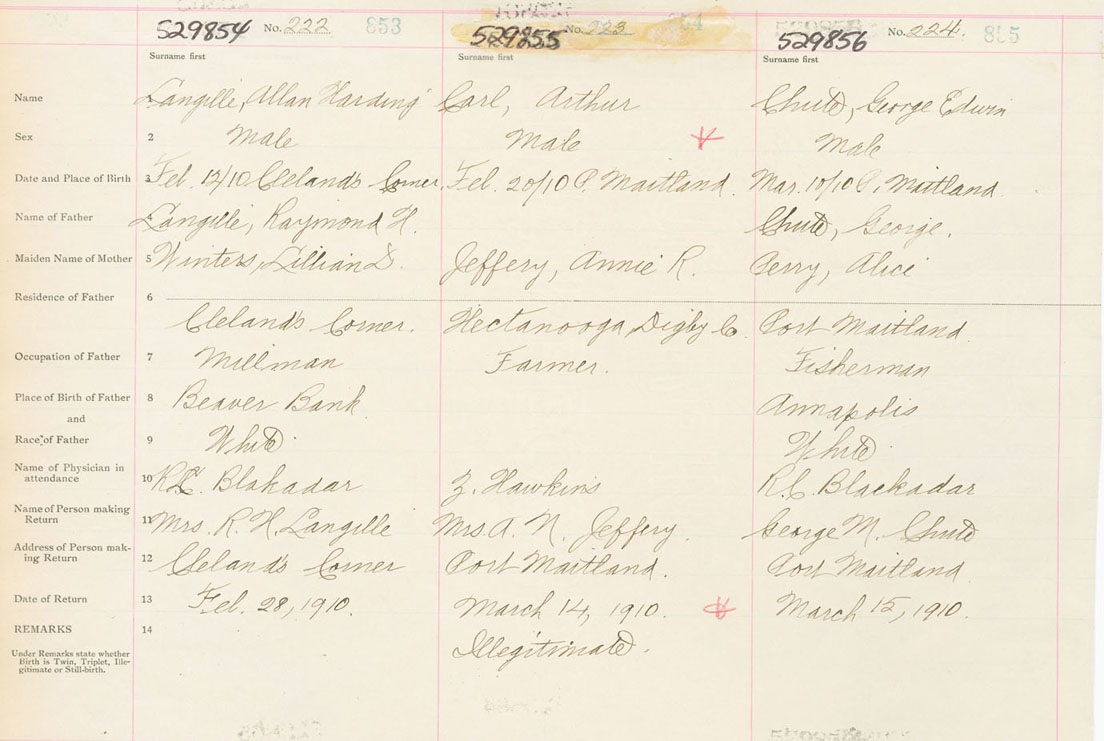 529854 No. 222 853 529855 No. 223 854 529856 No. 224 855
Surname first Surname first Surname first
Name 1 Langille, Allan Harding Carl, Arthur Chute, George Edwin
Sex 2 Male Male Male
Date and Place of Birth 3 Feb. 12/10 Cleland's Corner. Feb. 20/10 P. Maitland. Mar. 10/10 P. Maitland
Name of Father 4 Langille, Raymond H. Chute, George.
Maiden Name of Mother 5 Winters, Lillian D. Jeffery, Annie R. Perry, Alice
Residence of Father 6
Cleland's Corner. Hectanooga, Digby Co. Port Maitland.
Occupation of Father 7 Millman Farmer. Fisherman
Place of Birth of Father 8 Beaver Bank. Annapolis
and
Race of Father 9 White. White.
Name of Physician in
attendance 10 Blakadar Z. Hawkins R.C. Blackadar
Name of Person making
Return 11 Mrs. R. H. Langille Mrs. A. N. Jeffery. George M. Chute
Address of Person mak-
ing Return 12 Cleland's Corner Port Maitland. Port Maitland.
Date of Return 13 Feb. 28, 1910. March 14, 1910. March 15, 1910.
REMARKS 14
Illegitimate.
Under Remarks state whether
Birth is Twin, Triplet, Ille-
gitimate or Still-birth.